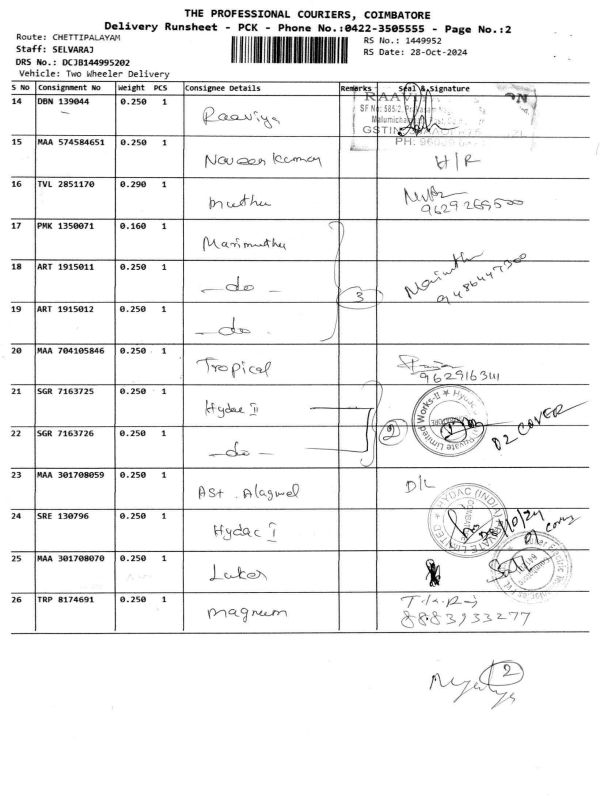 THE PROFESSIONAL COURIERS, COIMBATORE
Delivery Runsheet - PCK - Phone No.:0422-3505555 - Page No.:2
Route: CHETTIPALAYAM
RS No.: 1449952
Staff: SELVARAJ
RS Date: 28-Oct-2024
DRS No.: DCJB144995202
Vehicle: Two Wheeler Delivery
S No Consignment No Weight PCS Consignee Details Remarks Seal & Signature
14 DBN 139044 0.250 1 Raaviya
15 MAA 574584651 0.250 1 Naveen Kumar H/R
16 TVL 2851170 0.290 1 muthu
9629269500
17 PMK 1350071 0.160 1 Marimuthu
18 ART 1915011 0.250 1 -do- 3 Marimuthu
9486447300
19 ART 1915012 0.250 1 -do-
20 MAA 704105846 0.250 1 Tropical
21 SGR 7163725 0.250 1 Hydac II
22 SGR 7163726 0.250 1 -do- 2 02 COVER
23 MAA 301708059 0.250 1 AST. Alagwel D/L
24 SRE 130796 0.250 1 Hydac I
HYDAC (INDIA) PRIVATE LIMITED
25 MAA 301708070 0.250 1 Luker
26 TRP 8174691 0.250 1 magnum
8883933277
2